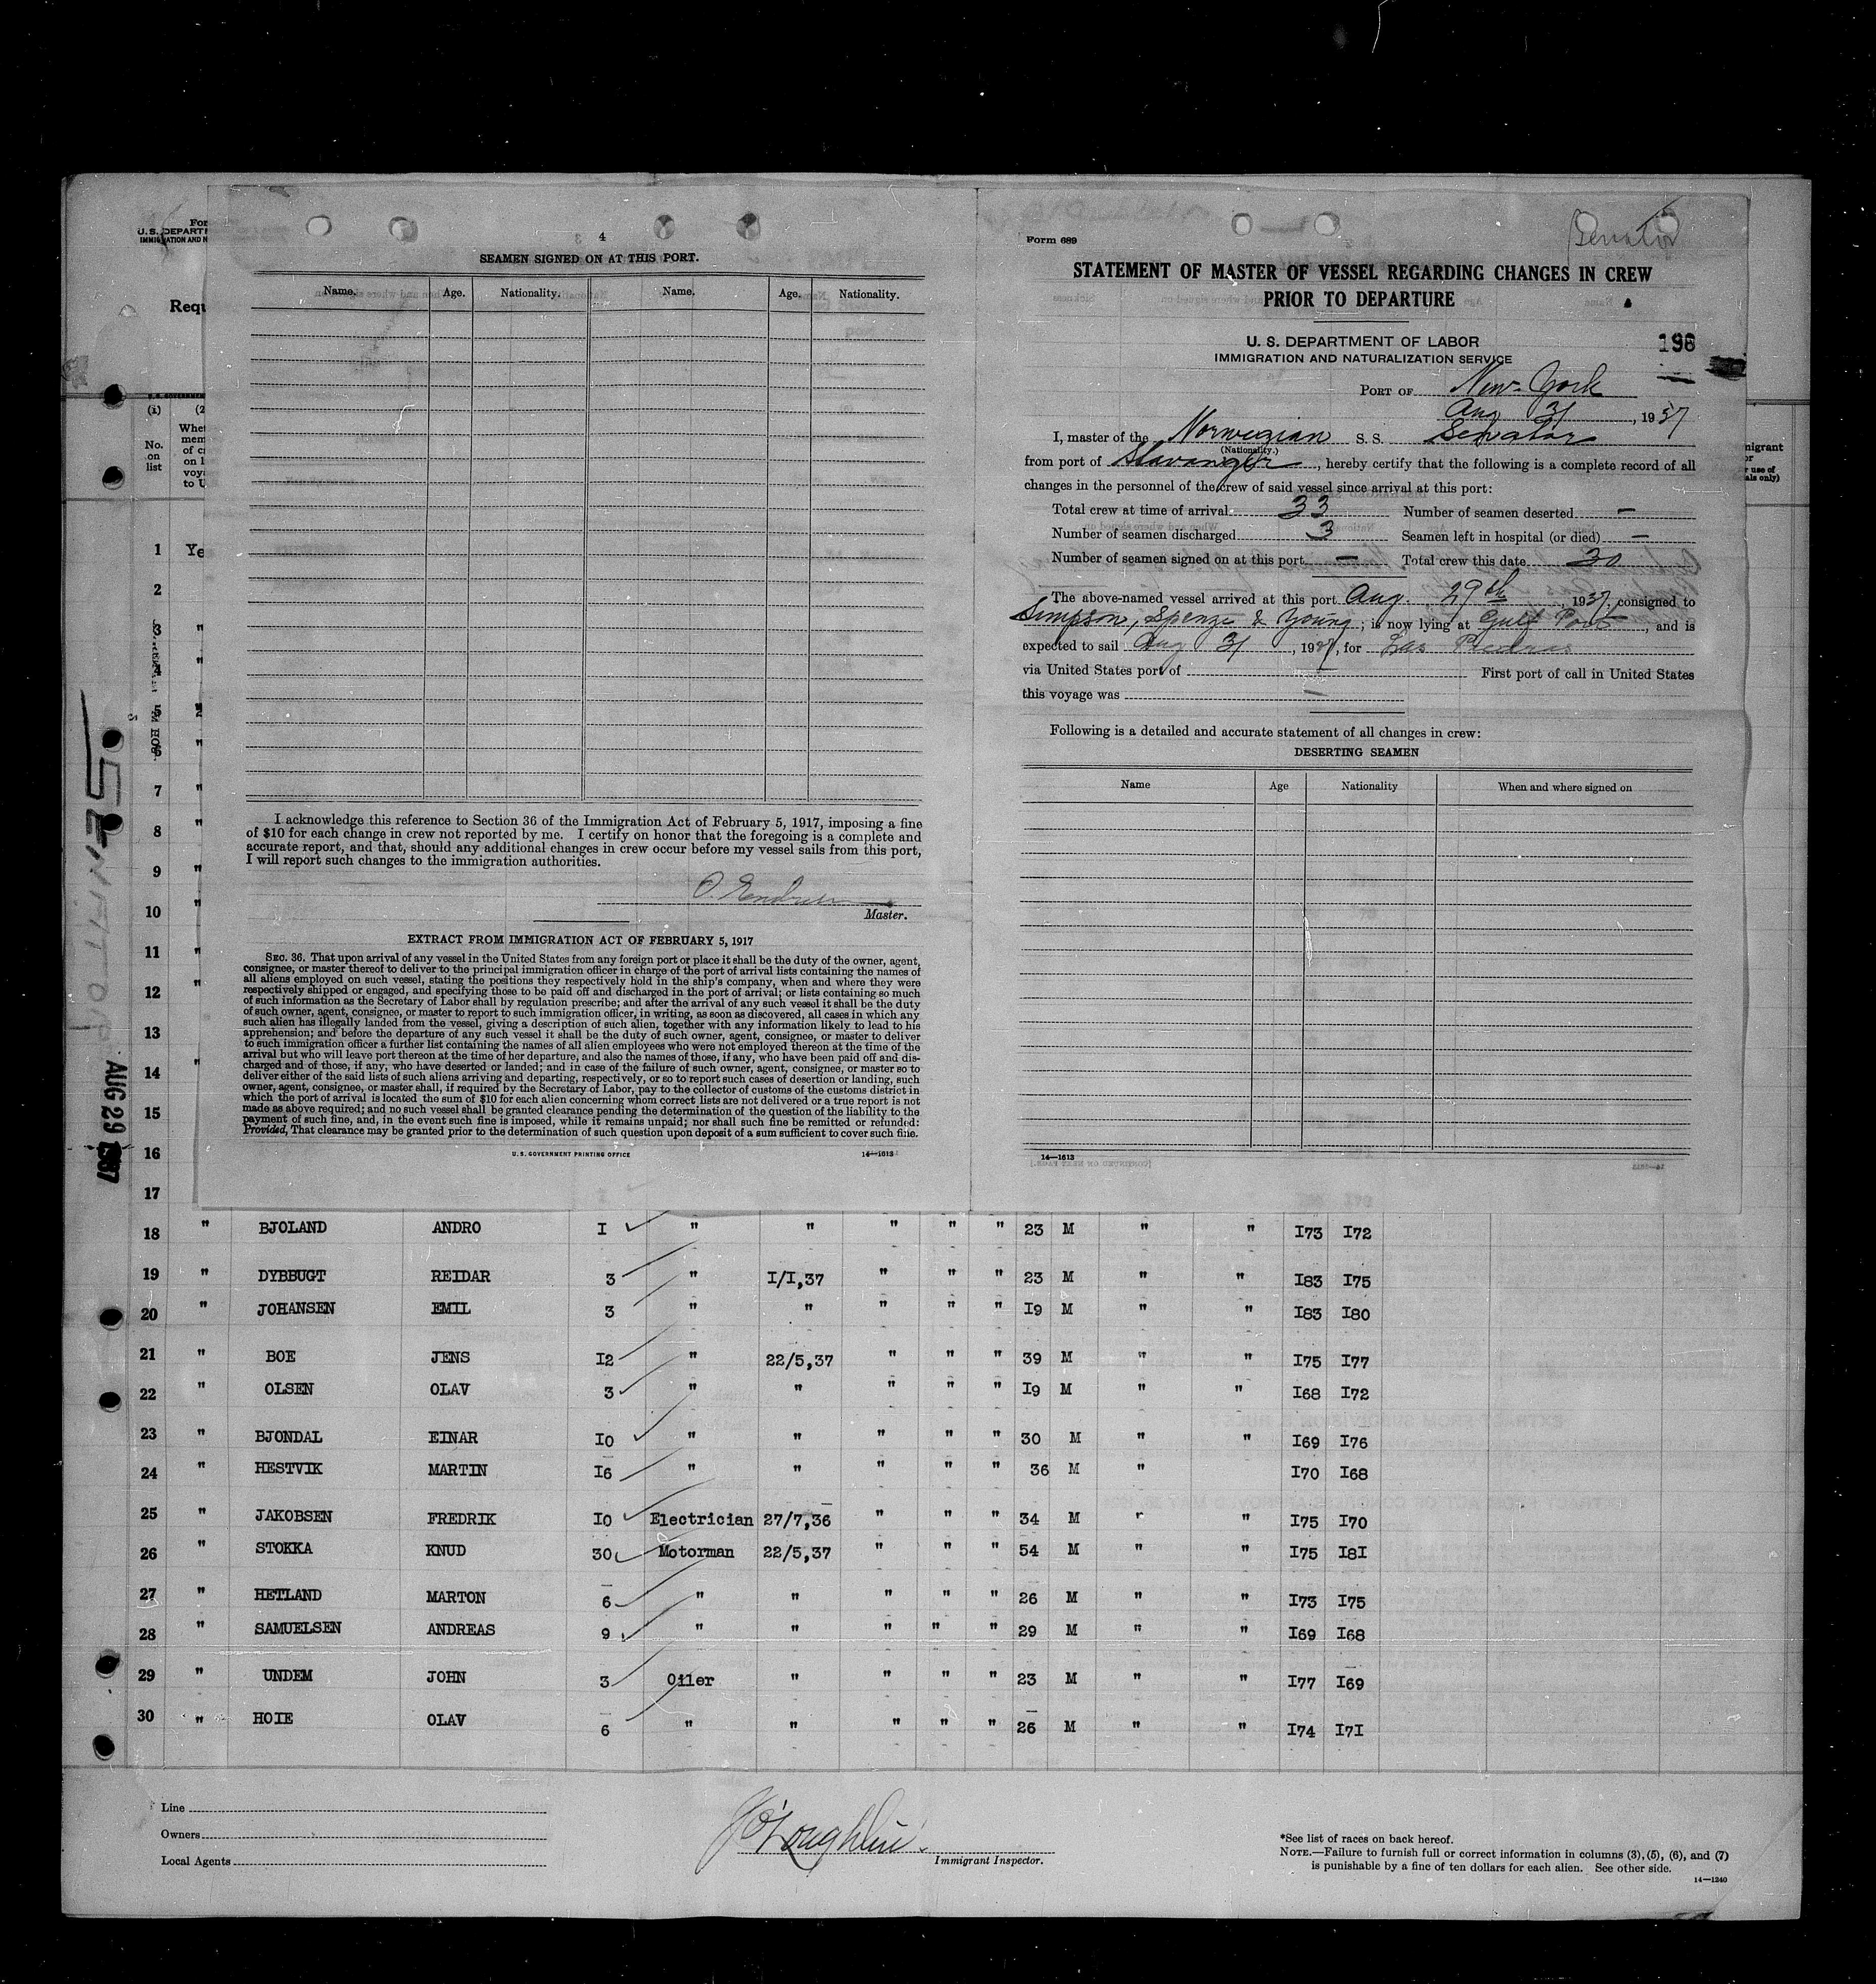 For
U. S. DEPARTM
IMMIGRATION AND N
Requ
(1)
No.
on
list
(2
Whet
mem
of c
on l
voy
to U
1 Ye
2
3 "
4 "
5
6 "
7 "
8 "
9 "
10 "
11 "
12 "
13
14 "
15
16
17
AUG 29 1937
4
SEAMEN SIGNED ON AT THIS PORT.
Name. Age. Nationality. Name. Age. Nationality.
I acknowledge this reference to Section 36 of the Immigration Act of February 5, 1917, imposing a fine
of $10 for each change in crew not reported by me. I certify on honor that the foregoing is a complete and
accurate report, and that, should any additional changes in crew occur before my vessel sails from this port,
I will report such changes to the immigration authorities.
Master.
EXTRACT FROM IMMIGRATION ACT OF FEBRUARY 5, 1917
SEC. 36. That upon arrival of any vessel in the United States from any foreign port or place it shall be the duty of the owner, agent,
consignee, or master thereof to deliver to the principal immigration officer in charge of the port of arrival lists containing the names of
all aliens employed on such vessel, stating the positions they respectively hold in the ship's company, when and where they were
respectively shipped or engaged, and specifying those to be paid off and discharged in the port of arrival; or lists containing so much
of such information as the Secretary of Labor shall by regulation prescribe; and after the arrival of any such vessel it shall be the duty
of such owner, agent, consignee, or master to report to such immigration officer, in writing, as soon as discovered, all cases in which any
such alien has illegally landed from the vessel, giving a description of such alien, together with any information likely to lead to his
apprehension; and before the departure of any such vessel it shall be the duty of such owner, agent, consignee, or master to deliver
to such immigration officer a further list containing the names of all alien employees who were not employed thereon at the time of the
arrival but who will leave port thereon at the time of her departure, and also the names of those, if any, who have been paid off and dis-
charged and of those, if any, who have deserted or landed; and in case of the failure of such owner, agent, consignee, or master so to
deliver either of the said lists of such aliens arriving and departing, respectively, or so to report such cases of desertion or landing, such
owner, agent, consignee, or master shall, if required by the Secretary of Labor, pay to the collector of customs of the customs district in
which the port of arrival is located the sum of $10 for each alien concerning whom correct lists are not delivered or a true report is not
made as above required; and no such vessel shall be granted clearance pending the determination of the question of the liability to the
payment of such fine, and, in the event such fine is imposed, while it remains unpaid; nor shall such fine be remitted or refunded:
Provided, That clearance may be granted prior to the determination of such question upon deposit of a sum sufficient to cover such fine.
U. S. GOVERNMENT PRINTING OFFICE 14—1613
Senator
Form 689
STATEMENT OF MASTER OF VESSEL REGARDING CHANGES IN CREW
PRIOR TO DEPARTURE
U. S. DEPARTMENT OF LABOR
IMMIGRATION AND NATURALIZATION SERVICE
196
PORT OF New York
Aug 31, 1937
I, master of the Norwegian S. S. Senator
(Nationality.)
from port of Stavanger, hereby certify that the following is a complete record of all
changes in the personnel of the crew of said vessel since arrival at this port:
Total crew at time of arrival 33 Number of seamen deserted —
Number of seamen discharged 3 Seamen left in hospital (or died) —
Number of seamen signed on at this port — Total crew this date 30
The above-named vessel arrived at this port Aug. 29th, 1937, consigned to
Simpson, Spence & Young; is now lying at Gulf Port, and is
expected to sail Aug 31, 1937, for Las Piedras
via United States port of First port of call in United States
this voyage was —
Following is a detailed and accurate statement of all changes in crew:
DESERTING SEAMEN
Name Age Nationality When and where signed on
14—1613
migrant
or
r use of
als only)
18 " BJOLAND ANDRO I " " " " " 23 M " " I73 I72
19 " DYBBUGT REIDAR 3 " I/I,37 " " " 23 M " " I83 I75
20 " JOHANSEN EMIL 3 " " " " " I9 M " " I83 I80
21 " BOE JENS I2 " 22/5,37 " " " 39 M " " I75 I77
22 " OLSEN OLAV 3 " " " " " I9 M " " I68 I72
23 " BJONDAL EINAR I0 " " " " " 30 M " " I69 I76
24 " HESTVIK MARTIN I6 " " " " " 36 M " I70 I68
25 " JAKOBSEN FREDRIK I0 Electrician 27/7,36 " " " 34 M " " I75 I70
26 " STOKKA KNUD 30 Motorman 22/5,37 " " " 54 M " " I75 I8I
27 " HETLAND MARTON 6 " " " " " 26 M " " I73 I75
28 " SAMUELSEN ANDREAS 9 " " " " " 29 M " " I69 I68
29 " UNDEM JOHN 3 Oiler " " " " 23 M " " I77 I69
30 " HOIE OLAV 6 " " " " " 26 M " " I74 I7I
Line
Owners
Local Agents
J O'Loughlin
Immigrant Inspector.
*See list of races on back hereof.
NOTE.—Failure to furnish full or correct information in columns (3), (5), (6), and (7)
is punishable by a fine of ten dollars for each alien. See other side.
14—1240